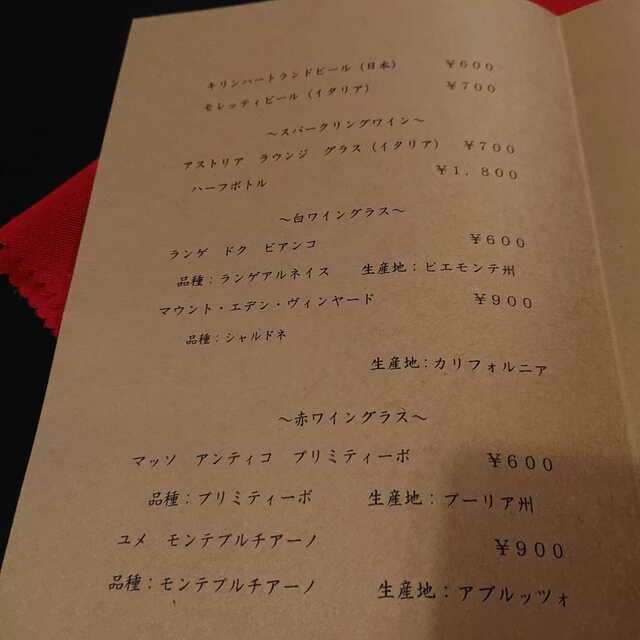 キリンハートランドビール（日本） ￥６００
モレッティビール（イタリア） ￥７００
～スパークリングワイン～
アストリア ラウンジ グラス（イタリア） ￥７００
ハーフボトル ￥１，８００
～白ワイングラス～
ランゲ ドク ビアンコ ￥６００
品種：ランゲアルネイス 生産地：ピエモンテ州
マウント・エデン・ヴィンヤード ￥９００
品種：シャルドネ
生産地：カリフォルニア
～赤ワイングラス～
マッソ アンティコ プリミティーボ ￥６００
品種：プリミティーボ 生産地：プーリア州
ユメ モンテプルチアーノ ￥９００
品種：モンテプルチアーノ 生産地：アブルッツォ